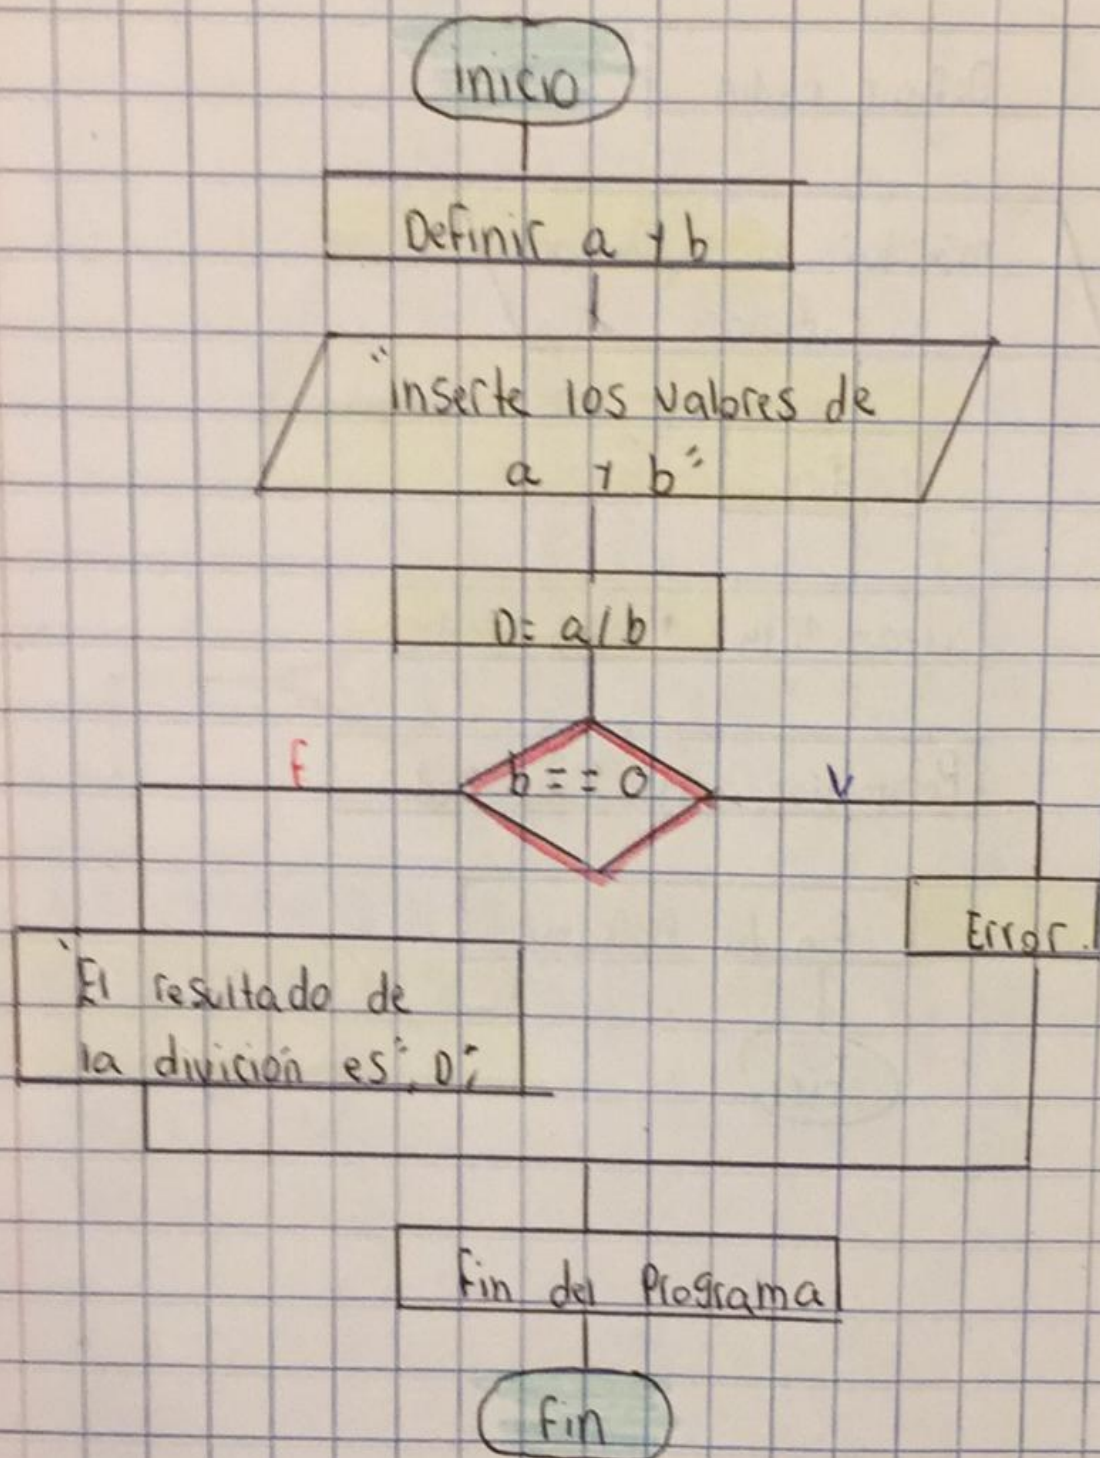 inicio
Definir a y b
"inserte los valores de
a y b"
D= a/b
b == 0
F
V
Error.
"El resultado de
la divición es", D;
Fin del Programa
Fin